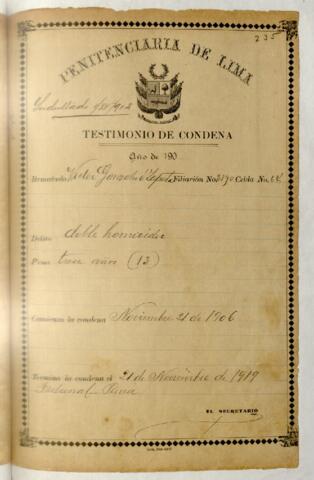 235
PENITENCIARIA DE LIMA
TESTIMONIO DE CONDENA
Año de 190
Rematado Víctor Filiación No. Celda No.
Delito doble homicidio
Pena trece años (13)
Comienza la condena Noviembre 21 de 1906
Termina la condena el 21 de Noviembre de 1919
Tribunal
EL SECRETARIO